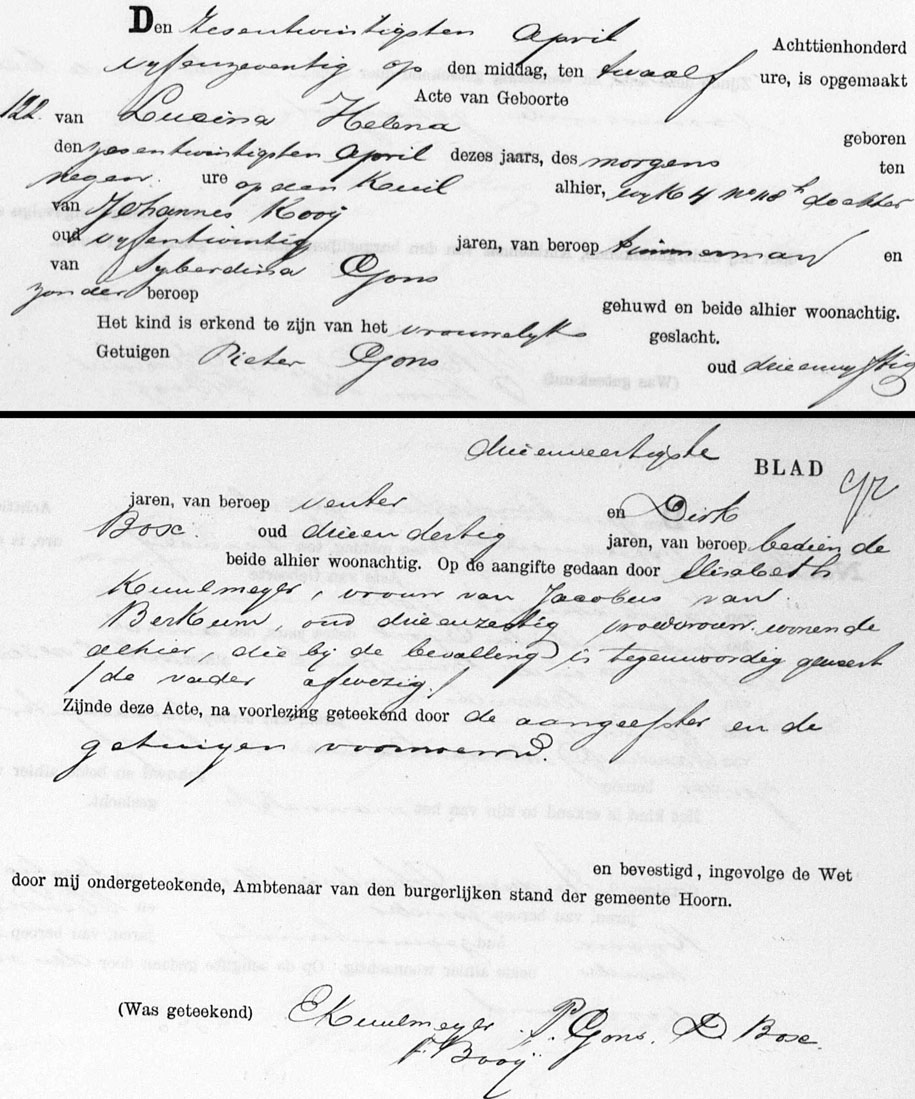 Den zesentwintigsten April Achttienhonderd
vyfenzeventig op den middag, ten twaalf ure, is opgemaakt
Acte van Geboorte
122. van Lucina Helena geboren
den zesentwintigsten April dezes jaars, des morgens ten
negen ure op den Kuil alhier, wyk 4 No dochter
van Johannes Kooij
oud vyfentwintig jaren, van beroep timmerman en
van Syberdina Ogons
zonder beroep gehuwd en beide alhier woonachtig.
Het kind is erkend te zijn van het vrouwelyk geslacht.
Getuigen Pieter Ogons oud drieenvyftig
drieenveertigste BLAD
jaren, van beroep venter en Dirk
Bosc oud drieendertig jaren, van beroep bediende
beide alhier woonachtig. Op de aangifte gedaan door Elisabeth
Kuulmeyer, vrouw van Jacobus van
Berkum, oud drieenzestig vroedvrouw wonende
alhier, die bij de bevalling is tegenwoordig geweest
/de vader afwezig./
Zijnde deze Acte, na voorlezing geteekend door de aangeefster en de
getuigen voornoemd.
en bevestigd, ingevolge de Wet
door mij ondergeteekende, Ambtenaar van den burgerlijken stand der gemeente Hoorn.
(Was geteekend) EKuulmeyer. P. Ogons. D Bosc.
Booij.